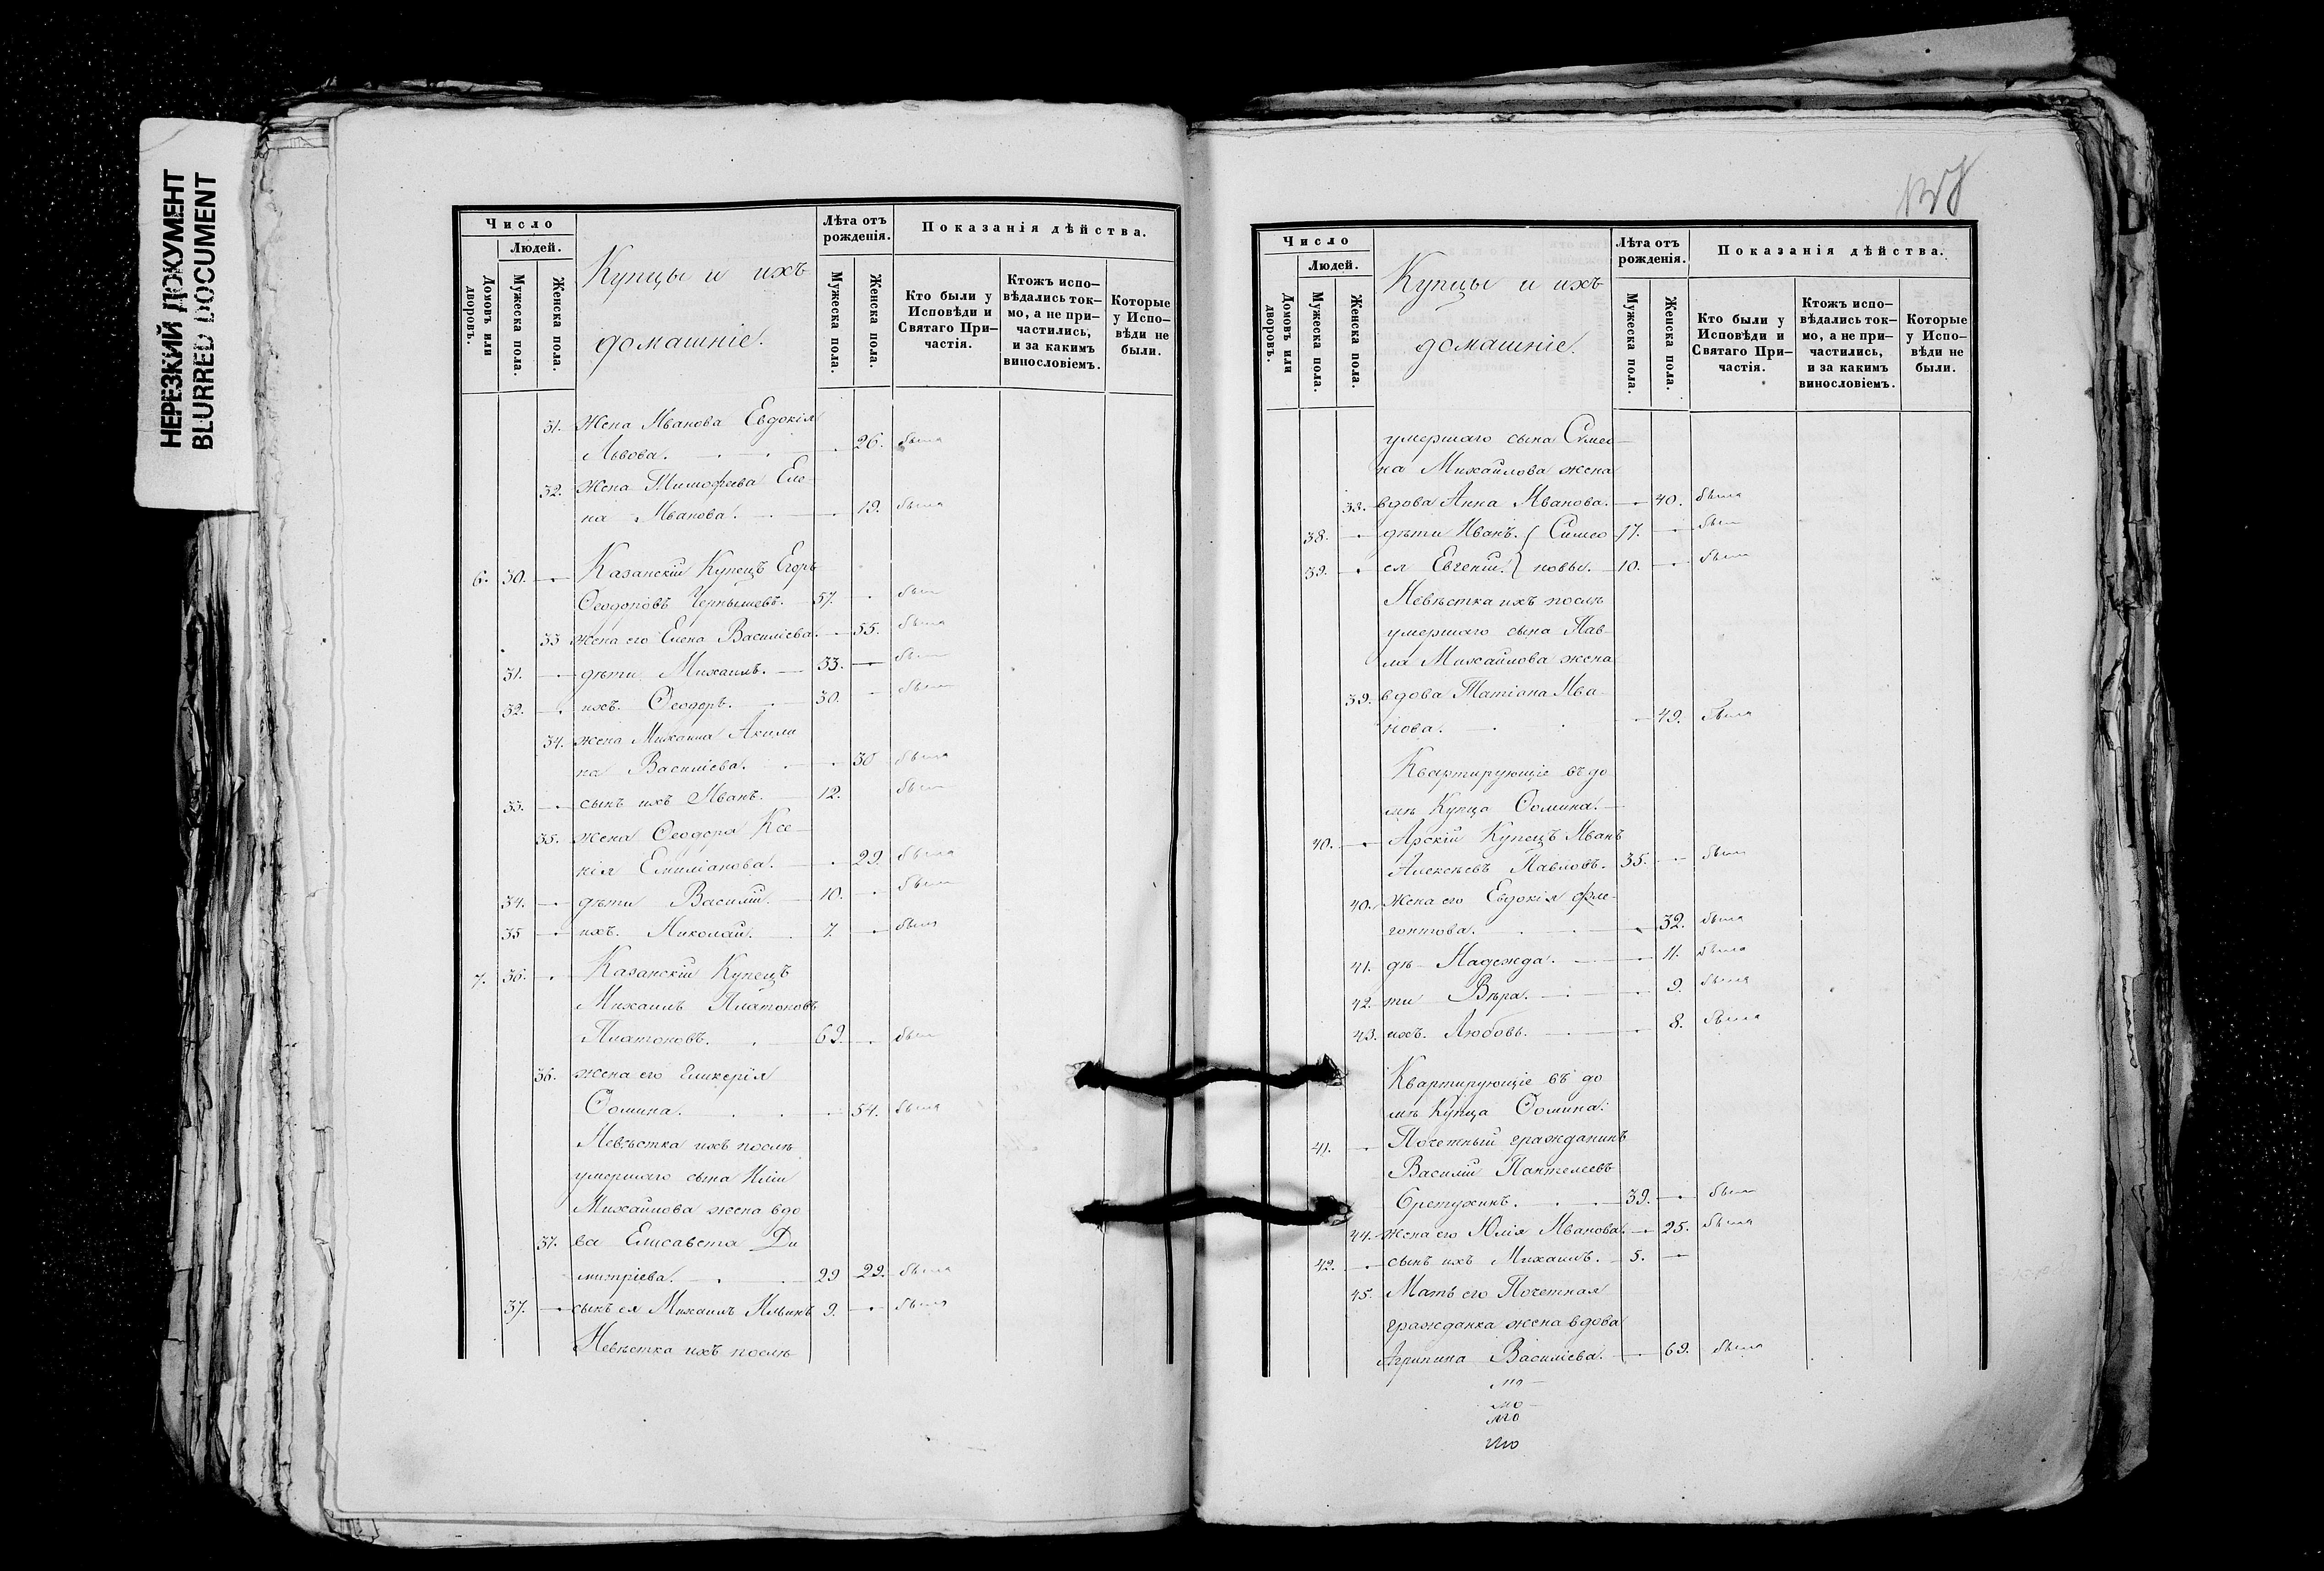 НЕРЕЗКИЙ ДОКУМЕНТ
BLURRED DOCUMENT
Число
Людей.
Домовъ или дворовъ.
Мужеска пола.
Женска пола.
Купцы и ихъ
домашніе.
Лѣта отъ рожденія.
Мужеска пола.
Женска пола.
Показанія дѣйства.
Кто были у Исповѣди и Святаго При-частія.
Ктожъ испо-вѣдались ток-мо, а не при-частились, и за какимъ винословіемъ.
Которые у Испо-вѣди не были.
31. Жена Иванова Евдокія
Львова. 26. была
32. Жена Тимофеева Еле-
на Иванова. 19. была
6. 30. Казанскій Купецъ Егоръ
Ѳеодоровъ Чернышевъ. 57. былъ
33 жена его Елена Василіева. 55. была
31. дѣти Михаилъ. 33. былъ
32. ихъ. Ѳеодоръ. 30. былъ
34. жена Михаила Акили
на Василіева. 30 была
33. сынъ ихъ Иванъ. 12. былъ
35. жена Ѳеодора Ксе-
нія Емиліанова. 29. была
34. дѣти Василій. 10. былъ
35 ихъ. Николай. 7. былъ
7. 36. Казанскій Купецъ
Михаилъ Платоновъ
Платоновъ. 69. былъ
36. жена его Гликерія
Ѳомина. 54. была
Невѣстка ихъ послѣ
умершаго сына Иліи
Михайлова жена вдо
37. ва Елисавета Ди
митріева. 29 29. была
37. сынъ ея Михаилъ Ильинъ 9. былъ
Невѣстка ихъ послѣ
Число
Людей.
Домовъ или дворовъ.
Мужеска пола.
Женска пола.
Купцы и ихъ
домашніе.
Лѣта отъ рожденія.
Мужеска пола.
Женска пола.
Показанія дѣйства.
Кто были у Исповѣди и Святаго При-частія.
Ктожъ испо-вѣдались ток-мо, а не при-частились, и за какимъ винословіемъ.
Которые у Испо-вѣди не были.
умершаго сына Сѵмео-
на Михайлова жена
38. вдова Анна Иванова. 40. была
38. дѣти Иванъ. { Симео 17. былъ
39. ея Евгеній. } новы. 10. былъ
Невѣстка ихъ послѣ
умершаго сына Пав-
ла Михайлова жена
39. вдова Татіана Ива-
нова. 49. была
Квартирующіе въ до
мѣ Купца Ѳомина.
40. Арскій Купецъ Иванъ
Алексѣевъ Павловъ. 35. былъ
40. Жена его Евдокія Фле-
гонтова. 32. была
41. дѣ- Надежда. 11. была
42. ти Вѣра. 9. была
43. ихъ. Любовь. 8. была
Квартирующіе въ до
мѣ Купца Ѳомина:
41. Почетный гражданинъ
Василій Пантелеевъ
39. былъ
44. жена его Юлія Иванова. 25. была
42. сынъ ихъ Михаилъ. 5.
45. Мать его Почетная
гражданка жена вдова
Агрипина Василіева. 69. была